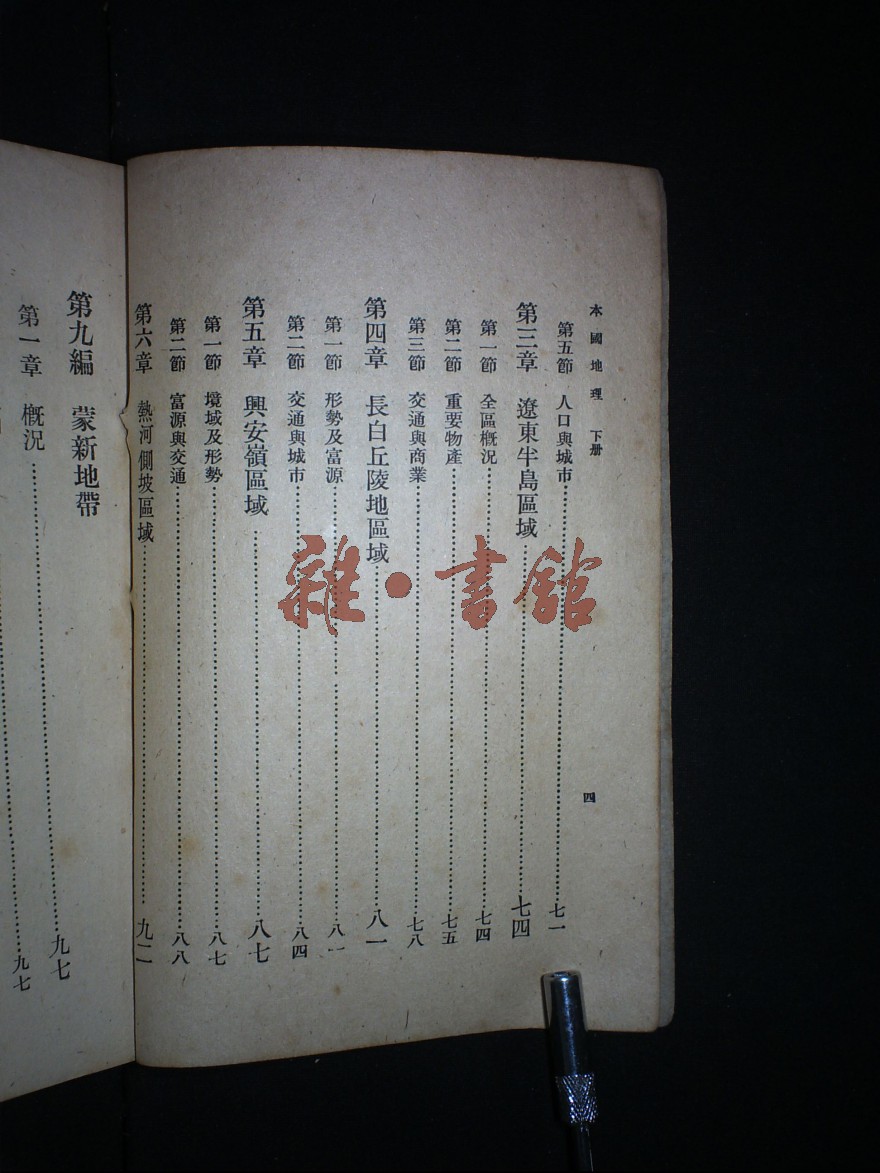 本國地理 下册
四
第五節 人口與城市……七一
第三章 遼東半島區域……七四
第一節 全區概況……七四
第二節 重要物產……七五
第三節 交通與商業……七八
第四章 長白丘陵地區域……八一
第一節 形勢及富源……八一
第二節 交通與城市……八四
第五章 興安嶺區域……八七
第一節 境域及形勢……八七
第二節 富源與交通……八八
第六章 熱河側坡區域……九二
第九編 蒙新地帶……九七
第一章 概況……九七
雜·書館